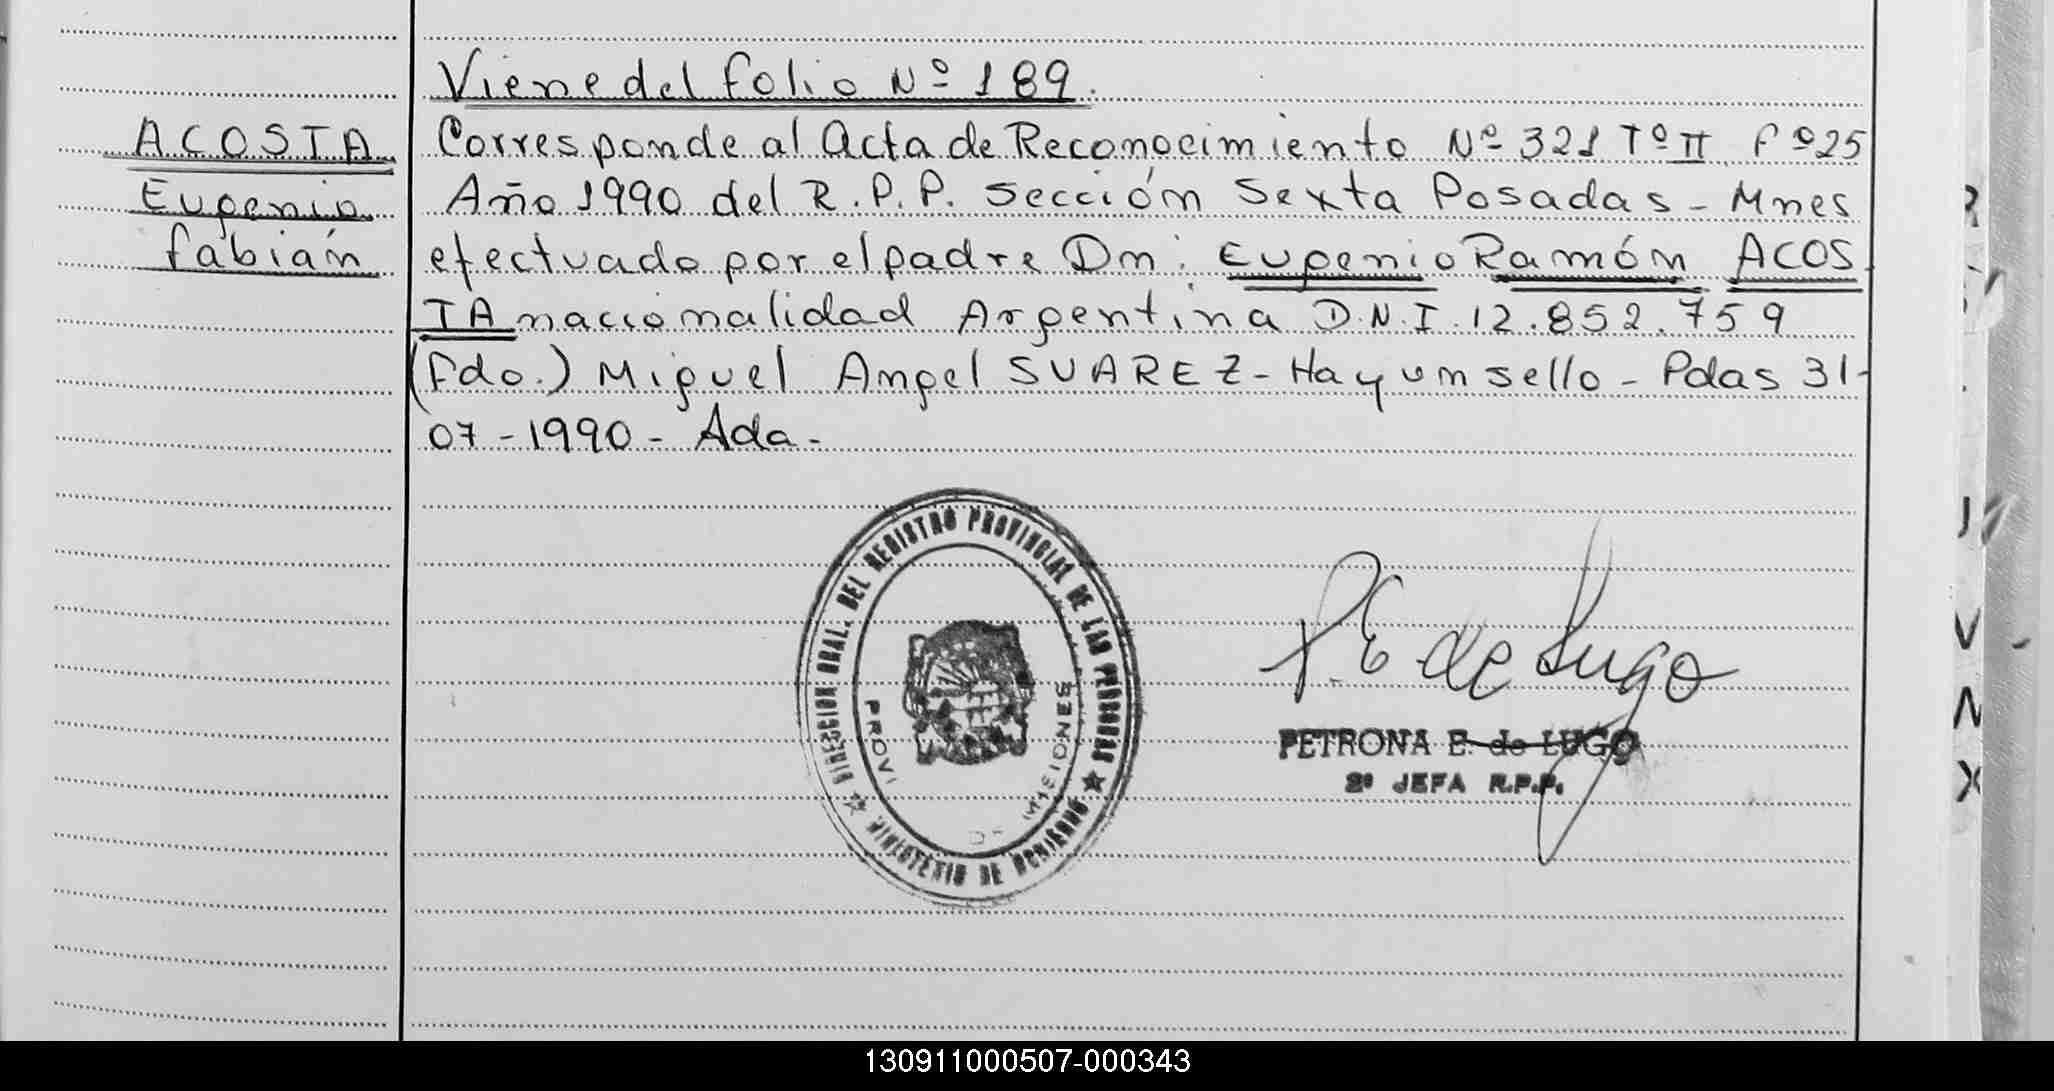 Viene del folio Nº 189.
ACOSTA
Eugenio
fabián
Corresponde al Acta de Reconocimiento Nº 321 Tº II Fº 25
Año 1990 del R.P.P. Sección Sexta Posadas - Mnes
efectuado por el padre Dn: Eugenio Ramón ACOS
TA nacionalidad Argentina D.N.I. 12.852.759
(Fdo.) Miguel Angel SUAREZ - Hay un sello - Pdas 31-
07-1990 - Ada -
DIRECCION GRAL. DEL REGISTRO PROVINCIAL DE LAS PERSONAS
MINISTERIO DE GOBIERNO
PROVI
DE MISIONES
P. E de Lugo
PETRONA E. de LUGO
2º JEFA R.P.P.
130911000507-000343